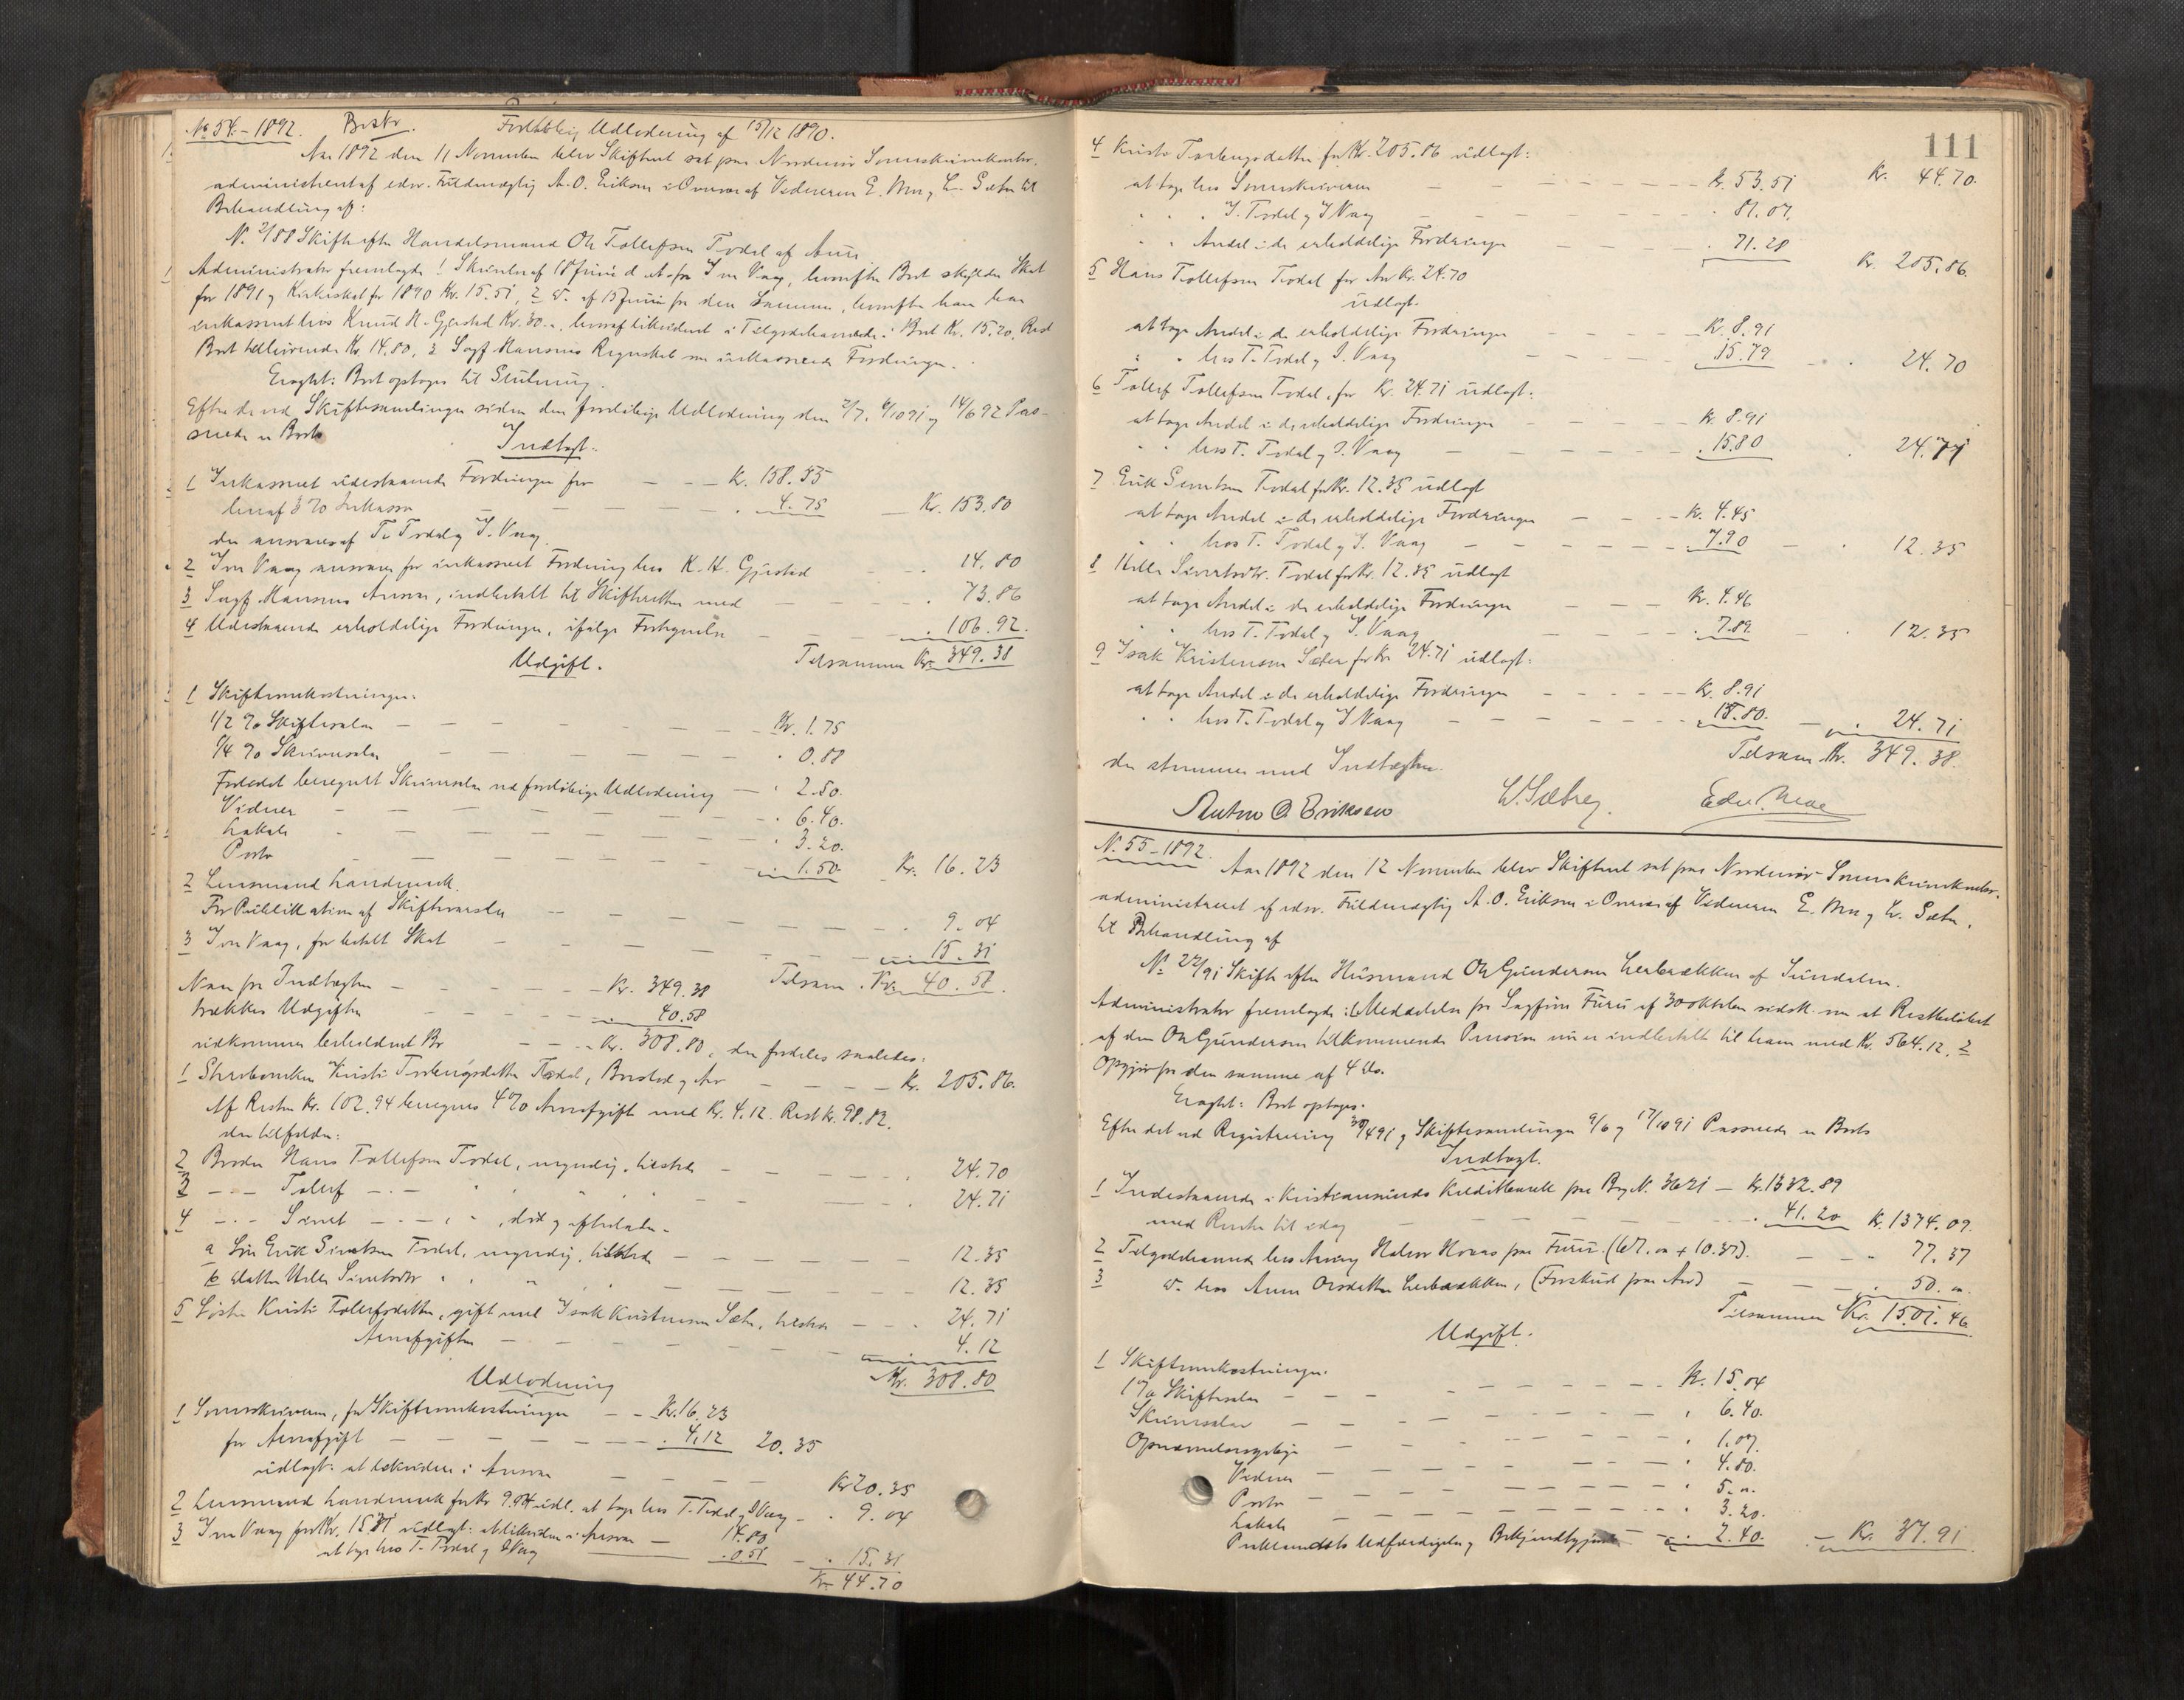 No 54 - 1892. Bostr. Foreløbig Udlodning af 15/12 1890.
Aar 1892 den 11 November blev Skifteret sat paa Nordmør Sorenskriverkontor,
administreret af edsv. Fuldmægtig A. O. Eriksen i Overvær af Vidnerne E. Moe og L. Sæter til
Behandling af:
No 2/88 Skifte efter Handelsmand Ole Tollefsen Todal af Aure
1 Administrator fremlagde 1 Skrivelse af 18 Juni d. A. fra Iver Vaag, hvorefter Boet skylder Skat
for 1891 og Kirkeskat for 1890 Kr. 15.51, 2 do. af 15 Juni fra den samme, hvorefter han har
inkasseret hos Knud H. Gjerstad Kr. 30.-, hvoraf likvideret i Tilgodehavende i Boet Kr. 15.20, Rest
Boet tilhørende Kr. 14.80, 3 Sagf. Hansens Regnskab over inkasserede Fordringer.
Eragtet: Boet optages til Slutning.
Efter de ved Skiftesamlinger siden den foreløbige Udlodning den 2/7, 6/10 91 og 14/6 92 Pas-
serede er Boets
Indtægt.
1 Inkasseret udestaaende Fordringer for — — Kr. 158.55
heraf 3 % Inkasso — — . 4.75 — Kr. 153.80
der ansvares af T. Todal og I. Vaag.
2 Iver Vaag ansvarer for inkasseret Fordring hos K. H. Gjerstad . . 14.80
3 Sagf. Hansens Ansvar, indbetalt til Skifteretten med — — . 73.86
4 Udestaaende erholdelige Fordringer, ifølge Fortegnelse — — . 106.92.
Tilsammen Kr. 349.38
Udgift.
1 Skifteomkostninger:
1/2 % Skiftesalær — — — Kr. 1.75
1/4 % Skriversalær — — — . 0.88
Forledet beregnet Skriversalær ved foreløbige Udlodning — . 2.50.
Vidner — — — . 6.40.
Lokale — — — . 3.20.
Porto — — — . 1.50. Kr. 16.23
2 Lensmand Landmark.
For Publikation af Skiftevarsler — — — . 9.04
3 Iver Vaag, for betalt Skat — — — 15.31
Tilsam. Kr. 40.58.
Naar fra Indtægten — — — Kr. 349.38
trækkes Udgiften — — — . 40.58
udkommer beholdent Bo — — Kr. 308.80, der fordeles saaledes:
1 Sterboenken Kristi Torbergsdatter Todal, Boslod og Arv — — — Kr. 205.86.
Af Resten Kr. 102.94 beregnes 4 % Arveafgift med Kr. 4.12. Rest Kr. 98.82.
der tilfalder:
2 Broder Hans Tollefsen Todal, myndig, tilstede — — — . 24.70
3 — Tollef — . — — — . 24.71
4 — Sivert — . — , død og efterladt:
a Søn Erik Sivertsen Todal, myndig, tilstede — — — 12.35
b Datter Helle Sivertsdtr — — — 12.35
5 Søster Kristi Tollefsdatter, gift med Isak Kristensen Sæter, tilstede — — . 24.71
Arveafgiften — — — . 4.12
Kr. 308.80
Udlodning
1 Sorenskriveren, for Skifteomkostninger — — Kr. 16.23
for Arveafgift — — — . 4.12 20.35
udlagt: at likvidere i Ansvar — — — Kr 20.35
2 Lensmand Landmark for Kr 9.04 udl. at tage hos T. Todal og I Vaag — . 9.04
3 Iver Vaag for Kr. 15.31 udlagt: at likvidere i Ansvar — 14.80
at tage hos T. Todal og I Vaag — . 0.51 — . 15.31
Kr 44.70
111
Kr. 44.70.
4 Kristi Torbergsdatter for Kr. 205.86 udlagt:
at tage hos Sorenskriveren — — — Kr. 53.51
. . . T. Todal og I Vaag — — — . 81.07.
. . Andel i de erholdelige Fordringer — — — . 71.28 Kr. 205.86.
5 Hans Tollefsen Todal for Arv Kr. 24.70
udlagt.
at tage Andel i de erholdelige Fordringer — — — Kr. 8.91
. . hos T. Todal og I. Vaag — — — . 15.79 . . 24.70
6 Tollef Tollefsen Todal, for Kr. 24.71 udlagt:
at tage Andel i de erholdelige Fordringer — — — Kr. 8.91
. . hos T. Todal og I. Vaag — — — . 15.80 . 24.71
7 Erik Sivertsen Todal for Kr. 12.35 udlagt
at tage Andel i de erholdelige Fordringer — — — Kr. 4.45
. . hos T. Todal og I. Vaag — — — . 7.90 — . 12.35
8 Helle Sivertsdtr. Todal for Kr. 12.35 udlagt
at tage Andel i de erholdelige Fordringer — — — Kr. 4.46
. . hos T. Todal og I. Vaag — — — . 7.89. — . 12.35
9 Isak Kristensen Sæter for Kr 24.71 udlagt:
at tage Andel i de erholdelige Fordringer — — — Kr. 8.91
. . hos T. Todal og I Vaag — — — . 15.80. — . 24.71
Tilsam. Kr. 349.38.
der stemmer med Indtægten.
Anton O Eriksen L. Sæter Edv. Moe
No. 55 - 1892.
Aar 1892 den 12 November blev Skifteret sat paa Nordmør Sorenskriverkontor,
administreret af edsv. Fuldmægtig A. O. Eriksen i Overvær af Vidnerne E. Moe og L. Sæter,
til Behandling af
No 22/91 Skifte efter Husmand Ole Gundersen Lerbækken af Sundalen.
Administrator fremlagde 1 Meddelelse fra Sagfører Furu af 30 oktober sidstl. om at Restbeløbet
af den Ole Gundersen tilkommende Pension nu er indbetalt til ham med Kr. 564.12, 2
Opgjør fra den samme af 4 ds.
Eragtet: Boet optages.
Efter det ved Registrering 30/4 91 og Skiftesamlinger 9/6 og 17/10 91 Passerede er Boets
Indtægt.
1 Indestaaende i Kristiansunds Kreditbank paa Bog N. 3621 — Kr. 1332.89
med Renter til idag — — — . 41.20 Kr. 1374.09.
2 Tilgodehavende hos Arving Halvor Hovas paa Furu (67.00 + 10.37). — — . 77.37
3 do. hos Anne Olsdatter Lerbækken, (Forskud paa Arv) — — . 50.00
Tilsammen Kr. 1501.46
Udgift.
1 Skifteomkostninger.
1 % Skiftesalær — — — Kr. 15.04
Skriversalær — — — . 6.40.
Opnævnelsesgebyr — — — . 1.07.
Vidner — — — . 4.80.
Porto — — — . 5.00.
Lokale — — — . 3.20.
Proklamaets Udfærdigelse og Bekjendtgj — . 2.40. — Kr. 37.91